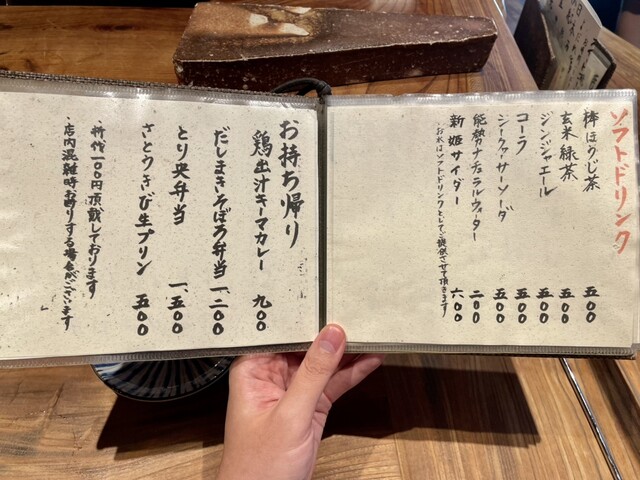 ソフトドリンク
棒ほうじ茶 五〇〇
玄米緑茶 五〇〇
ジンジャエール 五〇〇
コーラ 五〇〇
シークヮーサーソーダ 五〇〇
能勢ナチュラルウォーター 二〇〇
新姫サイダー 六〇〇
お水はソフトドリンクとしてご提供させて頂きます
お持ち帰り
鶏出汁キーマカレー 九〇〇
だしまきそぼろ弁当 一、二〇〇
とり央弁当 一、五〇〇
さとうきび生プリン 五〇〇
・折代一〇〇円頂戴しております
・店内混雑時お断りする場合がございます